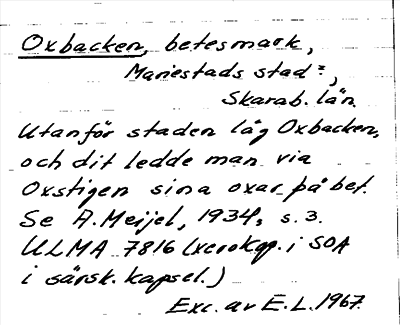 Oxbacken, betesmark,
Mariestads stad?,
Skarab. län.
Utanför staden låg Oxbacken,
och dit ledde man via
Oxstigen sina oxar på bet.
Se A. Meijel, 1934, s. 3.
ULMA 7816 (xerokop. i SOA
i särsk. kapsel.)
Exc. av E. L. 1967.